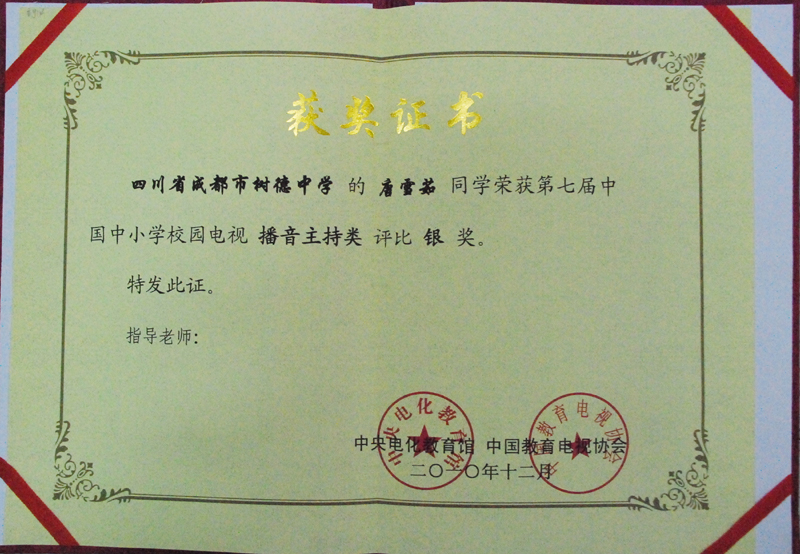 获奖证书
四川省成都市树德中学 的 唐雪茹 同学荣获第七届中
国中小学校园电视 播音主持类 评比 银 奖。
特发此证。
指导老师：
中央电化教育馆 中国教育电视协会
二〇一〇年十二月
中央电化教育馆
中国教育电视协会